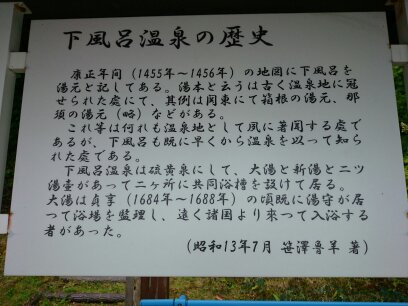 下風呂温泉の歴史
康正年间（1455年～1456年）の地図に下風呂を
湯元と記してある。湯本と云うは古く温泉地に冠
せられた処にて、其例は関東にて箱根の湯元、那
須の湯元（略）などがある。
これ等は何れも温泉地として夙に著聞する處で
あるが、下風呂も既に早くから温泉を以って知ら
れた処である。
下風呂温泉は硫黄泉にして、大湯と新湯と二ツ
湯壺があって二ヶ所に共同浴槽を設けて居る。
大湯は貞享（1684年～1688年）の頃既に湯守が居
って浴場を監理し、遠く諸国より来つて入浴する
者があった。
（昭和13年7月 笹澤魯羊 著）